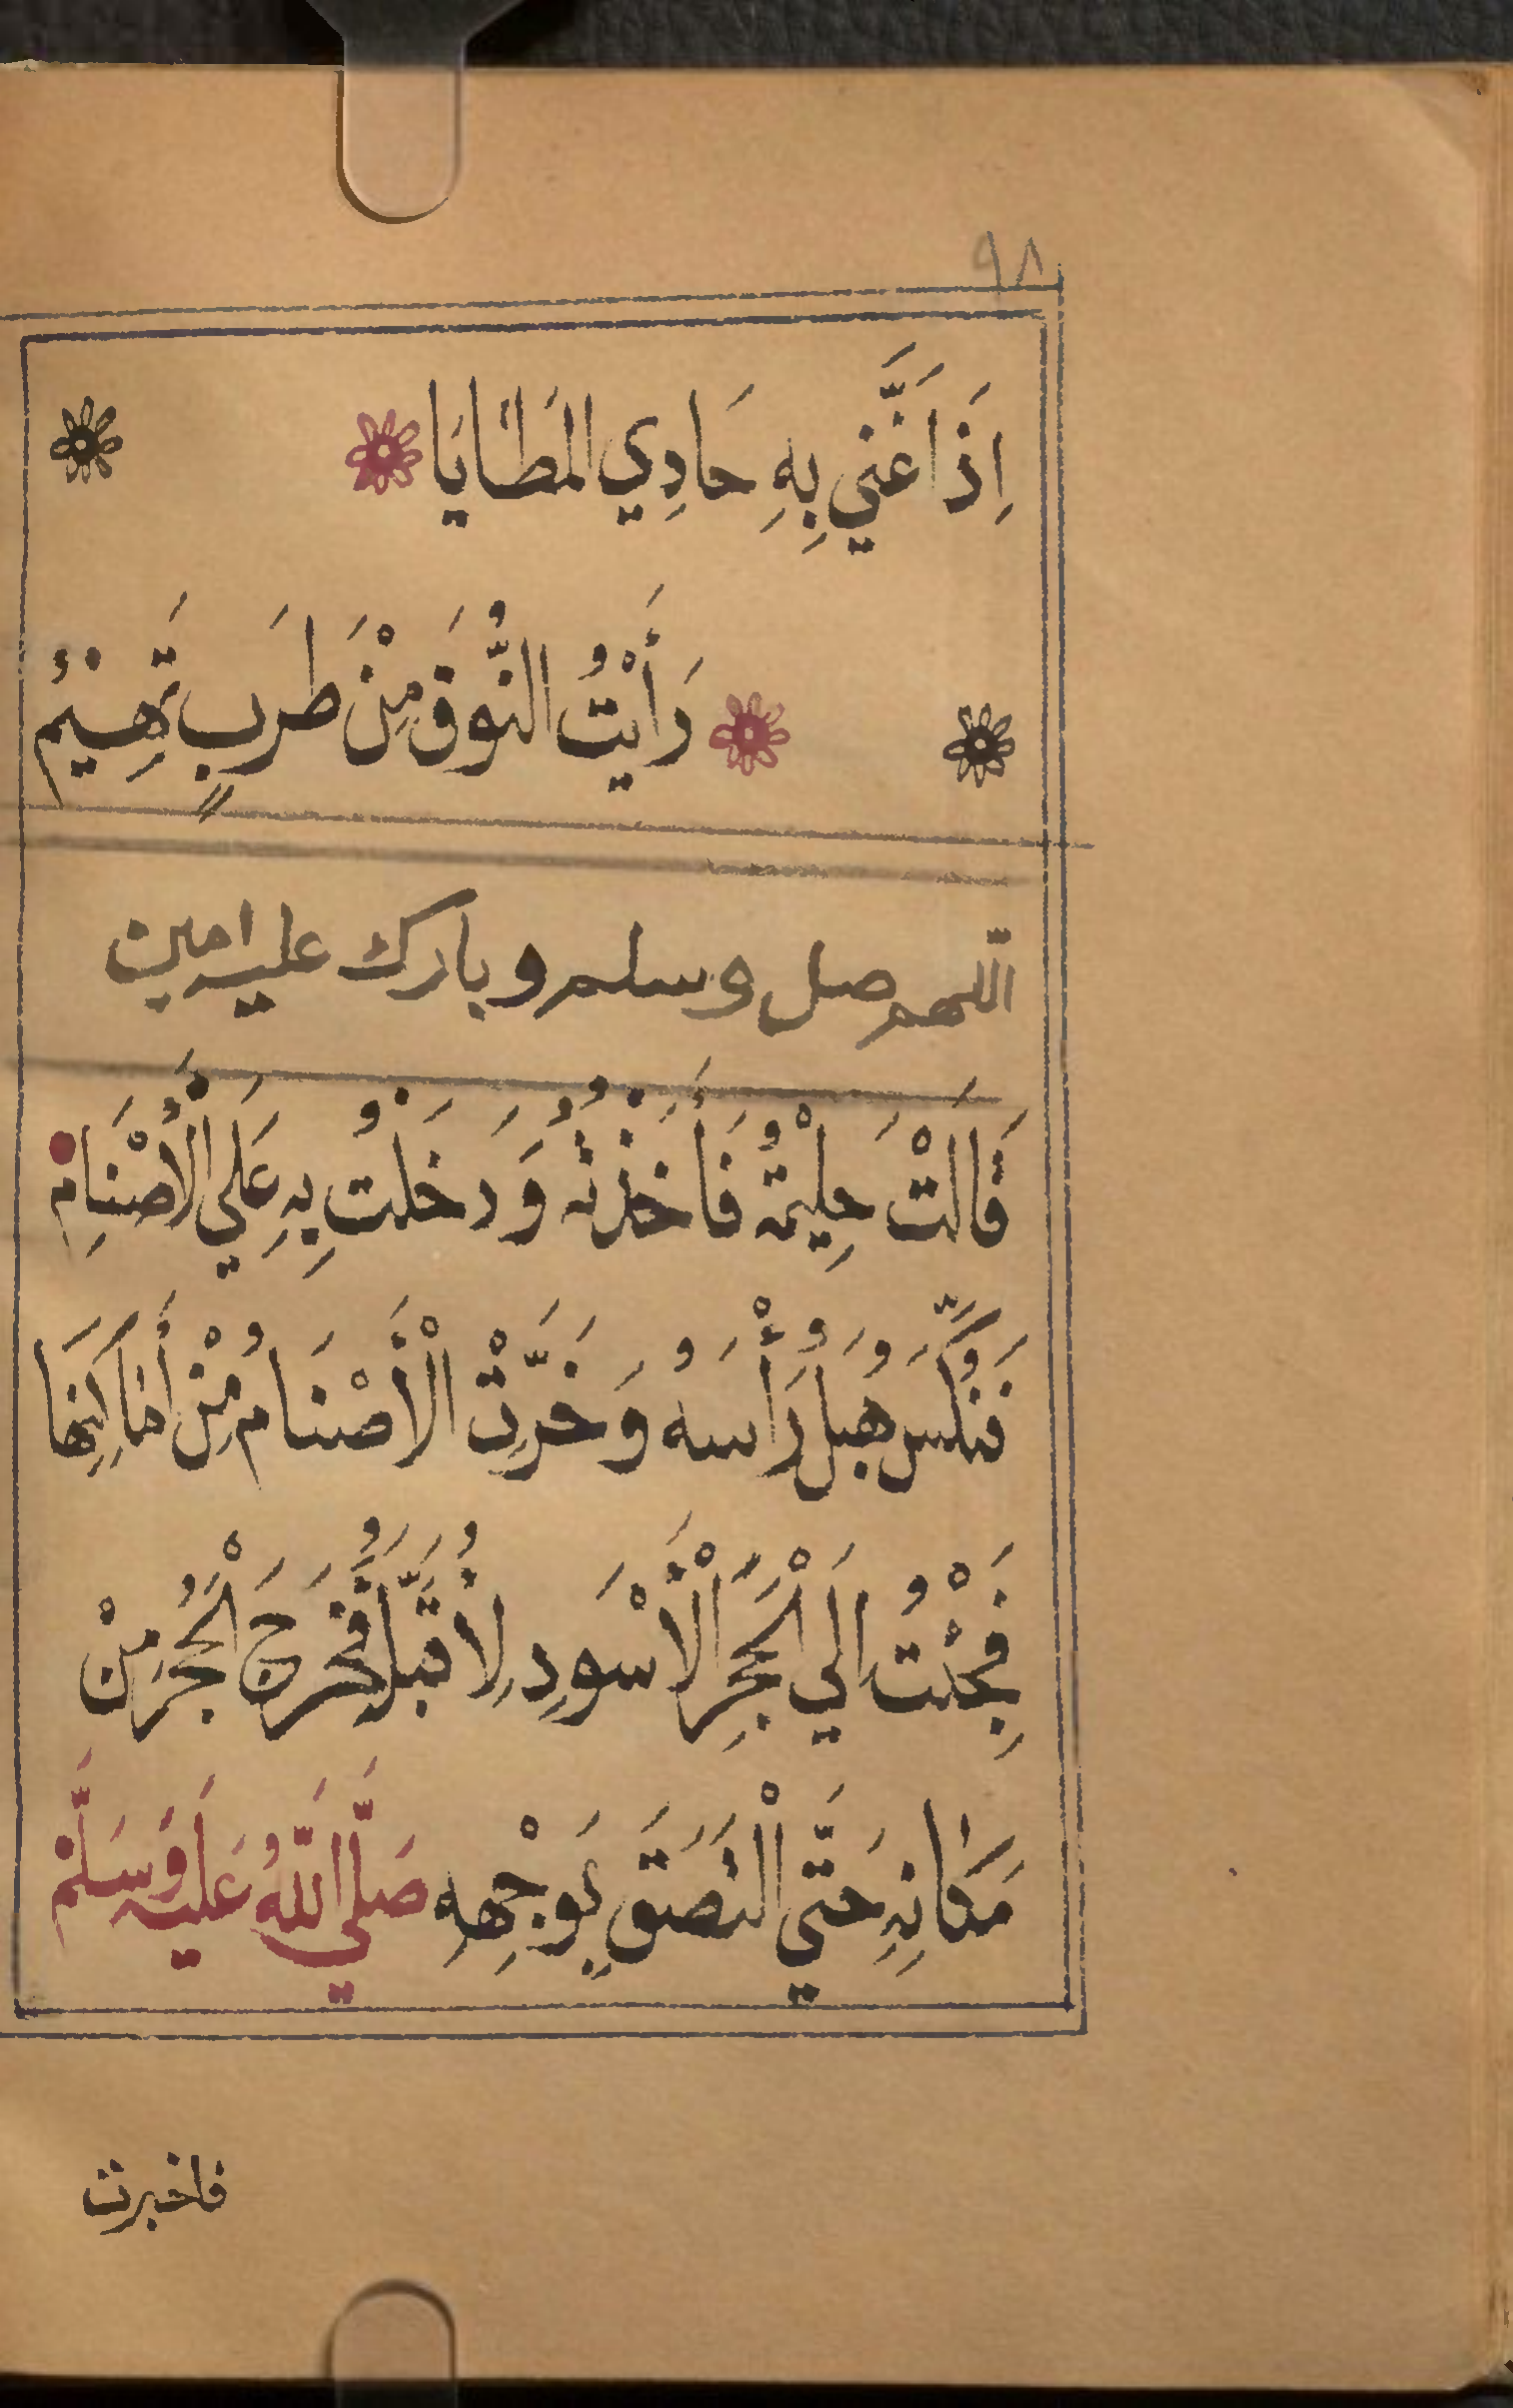 ٩٨
اِذَا غَنَّي بِهِ حَادِي المَطَايَا
رَأَيْتُ النُّوقَ مِنْ طَرَبٍ تَهِيْمُ
اللّهم صل وسلم وبارك عليه امين
قَالَتْ حَلِيْمَةُ فَأَخَذْتُهُ وَدَخَلْتُ بِهِ عَلَي الْأَصْنَامِ
فَنَكَّسَ هُبَلُ رَأْسَهُ وَخَرَّتْ الْأَصْنَامُ مِنْ أَمَاكِنِهَا
فَجِئْتُ اِلَي الْحَجَرِ الْأَسْوَدِ لِأُقَبِّلَهُ فَخَرَجَ الْحَجَرُ مِنْ
مَكَانِهِ حَتَّي الْتَصَقَ بِوَجْهِهِ صَلَّي اللّٰهُ عَلَيه وَسَلَّمَ
فاخبرت